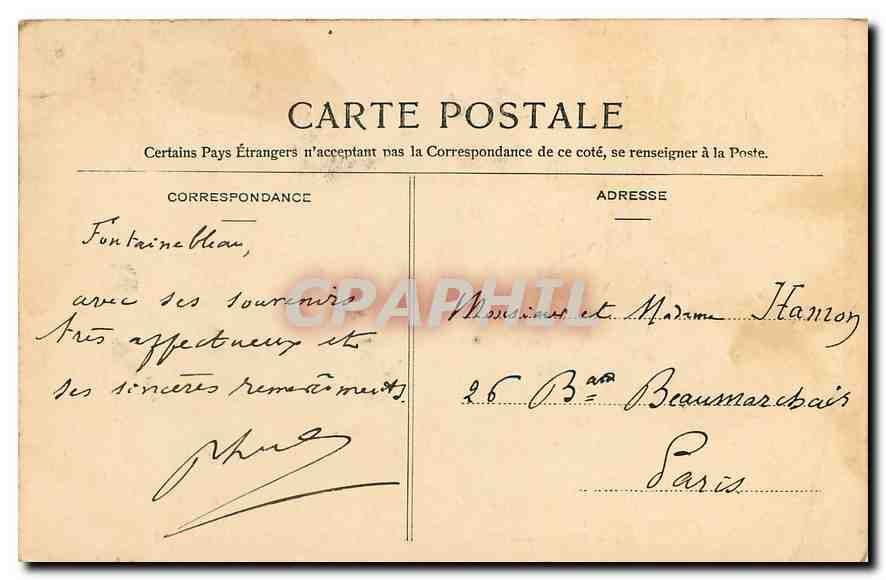 CARTE POSTALE
Certains Pays Étrangers n'acceptant pas la Correspondance de ce coté, se renseigner à la Poste.
CORRESPONDANCE
Fontainebleau,
avec ses souvenirs
très affectueux et
ses sincères remerciments.
ADRESSE
Monsieur et Madame Hamon
26 Bard Beaumarchais
Paris
CPAPHIL